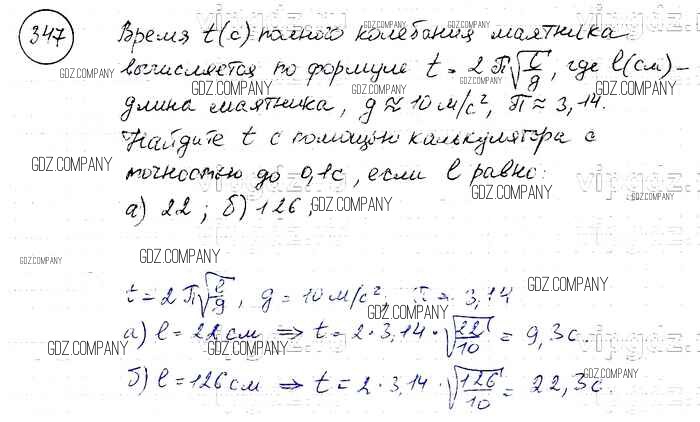 347 Время t(с) полного колебания маятника
вычисляется по формуле t = 2π√(l/g), где l(см) -
длина маятника, g ≈ 10 м/с², π ≈ 3,14.
Найдите t с помощью калькулятора с
точностью до 0,1с, если l равно:
а) 22; б) 126;
t = 2π√(l/g), g = 10 м/с², π = 3,14
а) l = 22 см ⇒ t = 2·3,14·√(22/10) = 9,3с.
б) l = 126 см ⇒ t = 2·3,14·√(126/10) = 22,3с.
GDZ.COMPANY
vipgdz